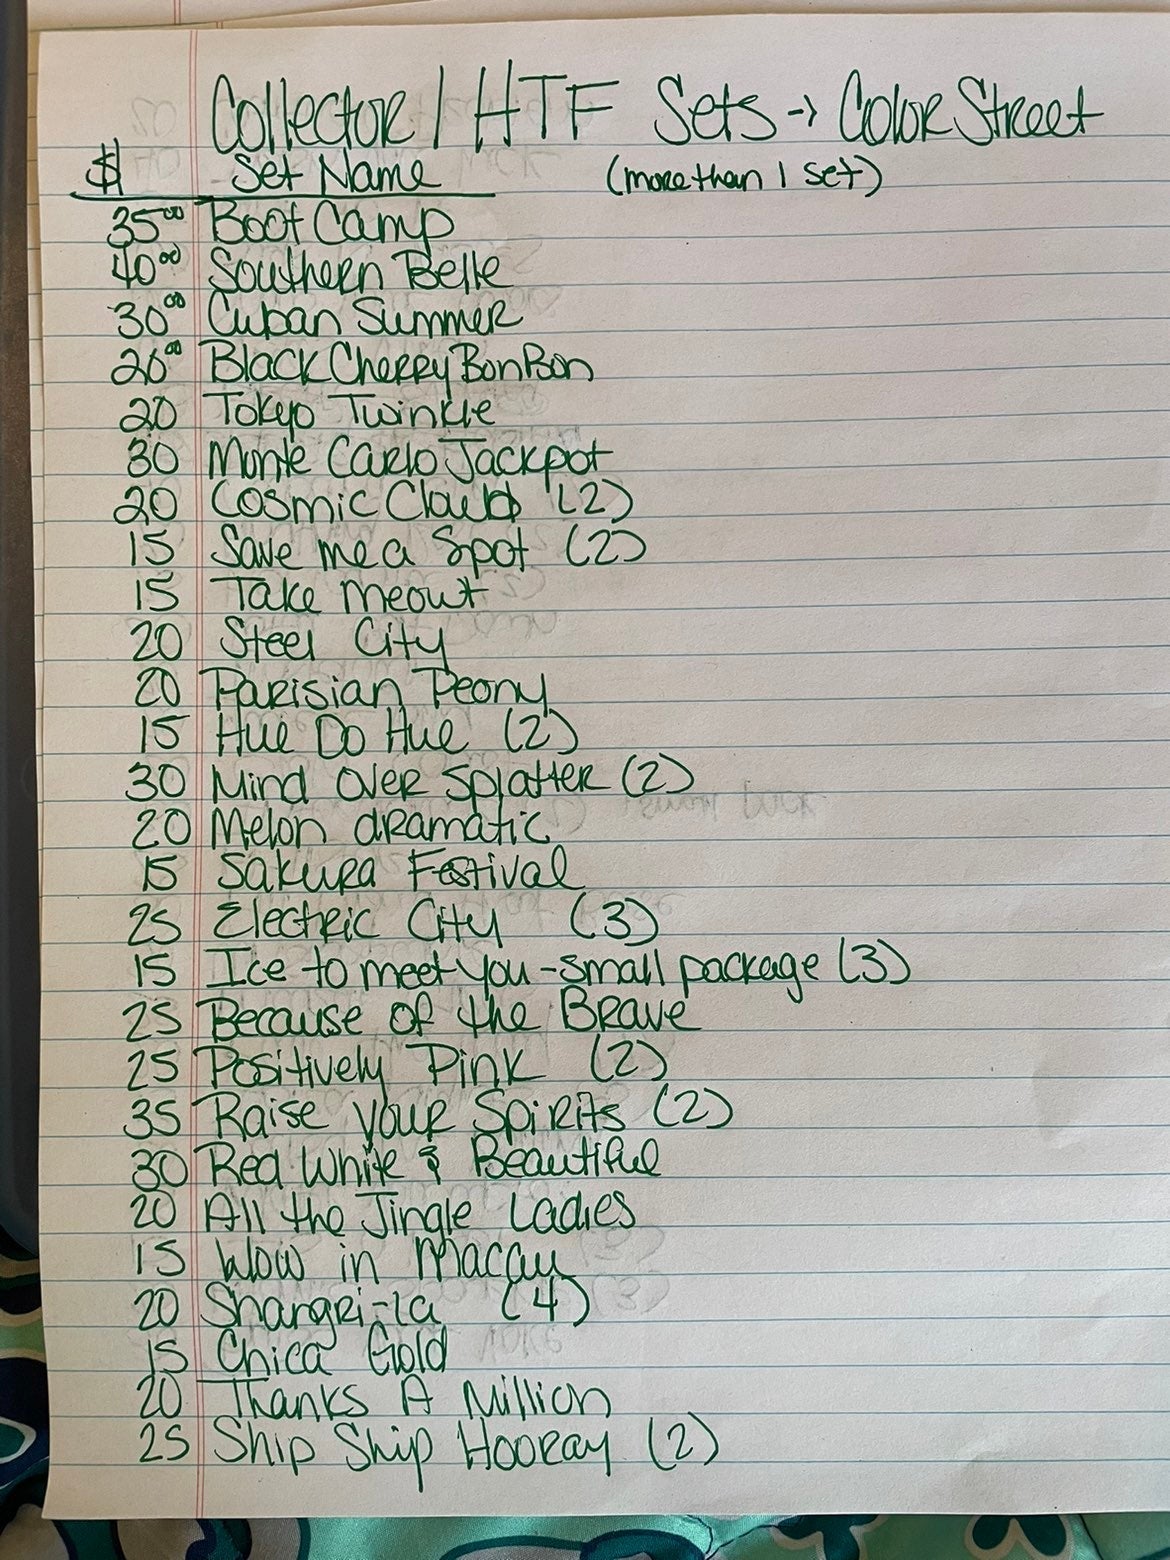 Collector / HTF Sets → Color Street
$ Set Name (more than 1 set)
35⁰⁰ Boot Camp
40⁰⁰ Southern Belle
30⁰⁰ Cuban Summer
20⁰⁰ Black Cherry BonBon
20 Tokyo Twinkle
30 Monte Carlo Jackpot
20 Cosmic Cloud (2)
15 Save me a Spot (2)
15 Take meowt
20 Steel City
20 Parisian Peony
15 Hue Do Hue (2)
30 Mind Over Splatter (2)
20 Melon dramatic
15 Sakura Festival
25 Electric City (3)
15 Ice to meet you - small package (3)
25 Because of the Brave
25 Positively Pink (2)
35 Raise your Spirits (2)
30 Red White & Beautiful
20 All the Jingle Ladies
15 Wow in Macau
20 Shangri-la (4)
15 Chica Gold
20 Thanks A Million
25 Ship Ship Hooray (2)